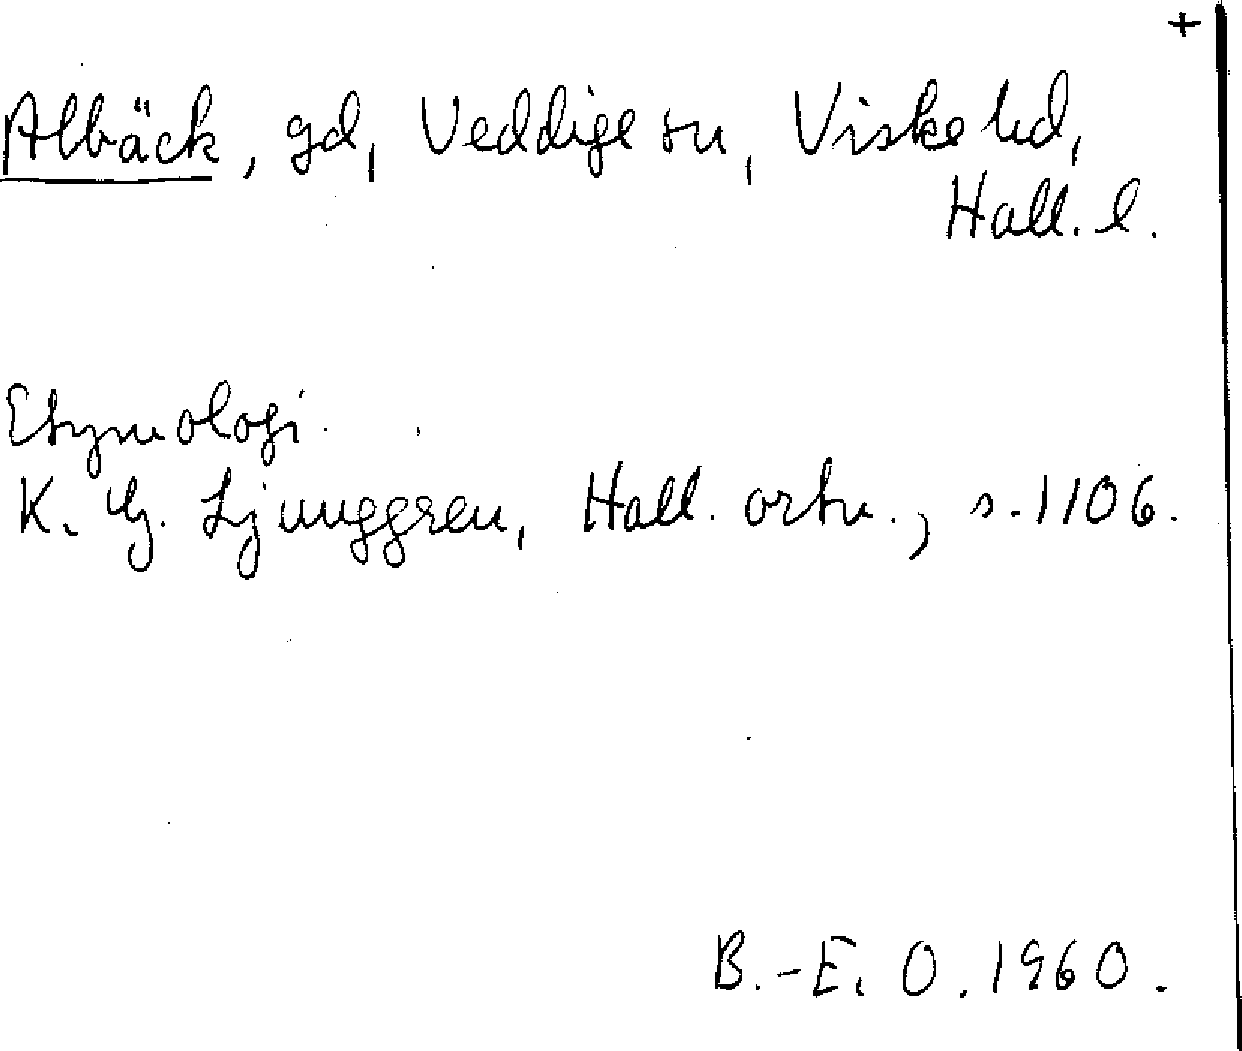 +
Albäck, gd, Veddige sn, Viske hd,
Hall. l.
Etymologi.
K. G. Ljunggren, Hall. ortn., s. 1106.
B.-E. O. 1960.